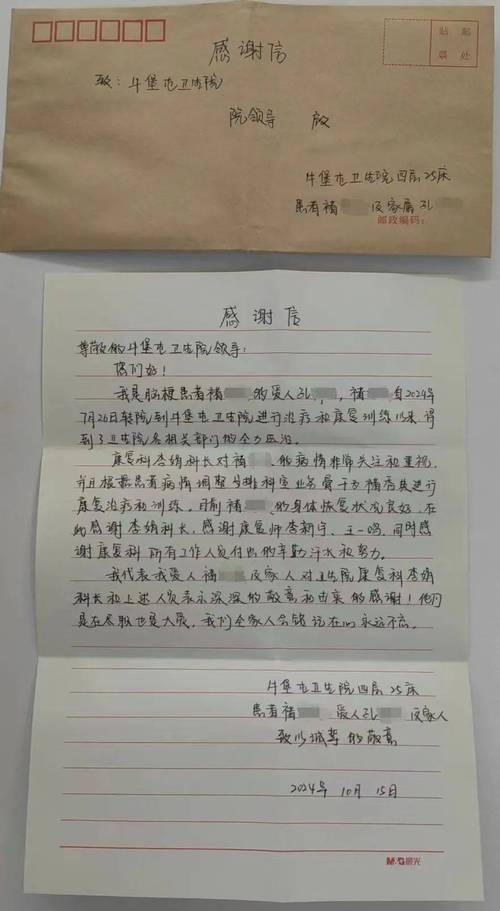 感谢信
贴 邮
票 处
致：牛堡屯卫生院
院领导 启
牛堡屯卫生院四层25床
患者褚 及家属孔
邮政编码：
感谢信
尊敬的牛堡屯卫生院领导：
您们好！
我是脑梗患者褚 的爱人孔 ，褚 自2024年
7月26日转院到牛堡屯卫生院进行治疗和康复训练以来，得
到了卫生院各相关部门的全力医治。
康复科李娟科长对褚 的病情非常关注和重视，
并且根据患者病情调整安排科室业务骨干为褚 进行
康复治疗和训练，目前褚 的身体恢复状况良好，在
此感谢李娟科长，感谢康复师李新宇、王一鸣，同时感
谢康复科所有工作人员付出的辛勤汗水和努力。
我代表我爱人褚 及家人对卫生院康复科李娟
科长和上述人员表示深深的敬意和由衷的感谢！他们
是在尽职也是大爱，我们全家人会铭记在心永远不忘。
牛堡屯卫生院四层25床
患者褚 爱人孔 及家人
致以诚挚的敬意
2024年 10月 15日
M&G晨光